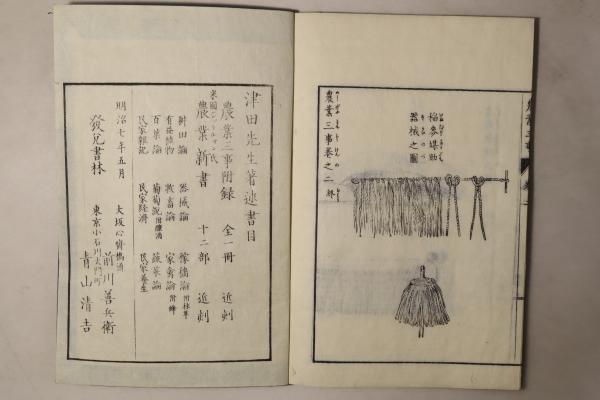 稲麥媒助
器械之圖
農業三事巻之二終
津田先生著述書目
農業三事附録 全一冊 近刻
米國
農業新書 十二部 近刻
耕田論 器械論
有益植物 牧畜論 家禽論
百菓論 葡萄說 蔬菜論
民家雜記 民家経濟 民家養生
明治七年五月
發兌書林
大坂心齋橋
前川善兵衛
東京小石川大門町
青山清吉